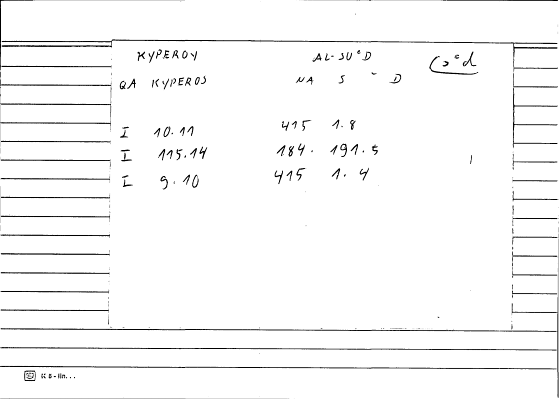 KYPEROY AL-SU°D
QA KYPEROS NA S D
I 10.11 415 1.8
I 115.14 184. 191.5
I 9.10 415 1. 4